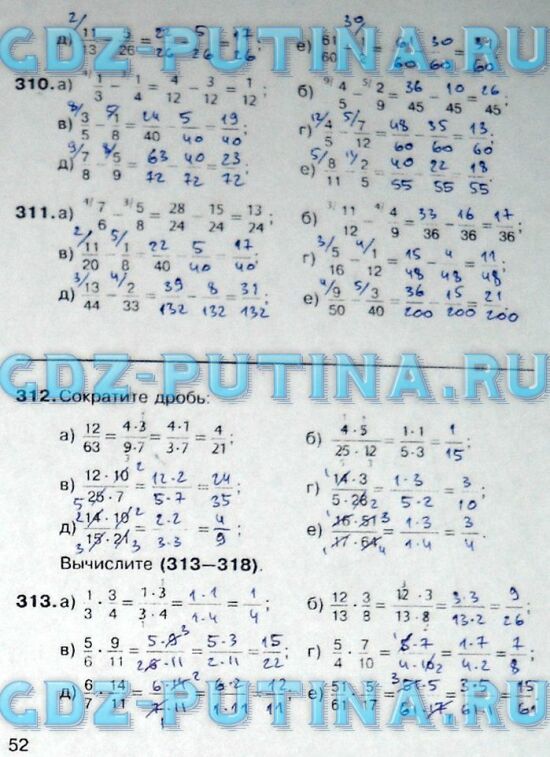 д) 2/ 11/13 - 5/26 = 22/26 - 5/26 = 17/26; е) 61/60 - = 61/60 - 30/60 = 31/60
GDZ-PUTINA.RU
310. а) 4/ 1/3 - 3/ 1/4 = 4/12 - 3/12 = 1/12; б) 9/ 4/5 - 5/ 2/9 = 36/45 - 10/45 = 26/45;
в) 8/ 3/5 - 5/ 1/8 = 24/40 - 5/40 = 19/40; г) 12/ 4/5 - 5/ 7/12 = 48/60 - 35/60 = 13/60;
д) 9/ 7/8 - 8/ 5/9 = 63/72 - 40/72 = 23/72; е) 5/ 8/11 - 11/ 2/5 = 40/55 - 22/55 = 18/55
311. а) 4/ 7/6 - 3/ 5/8 = 28/24 - 15/24 = 13/24; б) 3/ 11/12 - 4/ 4/9 = 33/36 - 16/36 = 17/36;
в) 2/ 11/20 - 5/ 1/8 = 22/40 - 5/40 = 17/40; г) 3/ 5/16 - 4/ 1/12 = 15/48 - 4/48 = 11/48;
д) 3/ 13/44 - 4/ 2/33 = 39/132 - 8/132 = 31/132 е) 4/ 9/50 - 5/ 3/40 = 36/200 - 15/200 = 21/200
GDZ-PUTINA.RU
312. Сократите дробь:
а) 12/63 = 4·3/9·7 = 4·1/3·7 = 4/21; б) 4·5/25·12 = 1·1/5·3 = 1/15;
в) 12·10/25·7 = 12·2/5·7 = 24/35 г) 14·3/5·28 = 1·3/5·2 = 3/10;
д) 14·10/15·21 = 2·2/3·3 = 4/9; е) 16·51/17·64 = 1·3/1·4 = 3/4.
Вычислите (313—318).
313. а) 1/3 · 3/4 = 1·3/3·4 = 1·1/1·4 = 1/4; б) 12/13 · 3/8 = 12·3/13·8 = 3·3/13·2 = 9/26;
в) 5/6 · 9/11 = 5·9/6·11 = 5·3/2·11 = 15/22; г) 5/4 · 7/10 = 5·7/4·10 = 1·7/4·2 = 7/8;
GDZ-PUTINA.RU
д) 6/7 · 14/11 = 6·14/7·11 = 6·2/1·11 = 12/11. е) 51/61 · 5/17 = 51·5/61·17 = 3·5/61·1 = 15/61
52